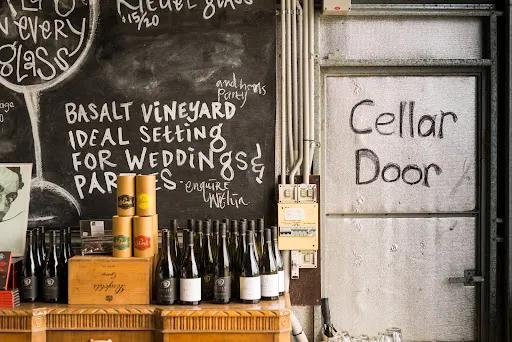 in every
glass
Riedel glass
$15/20
and hens
party
BASALT VINEYARD
IDEAL SETTING
FOR WEDDINGS &
PARTIES • enquire
within
Cellar
Door